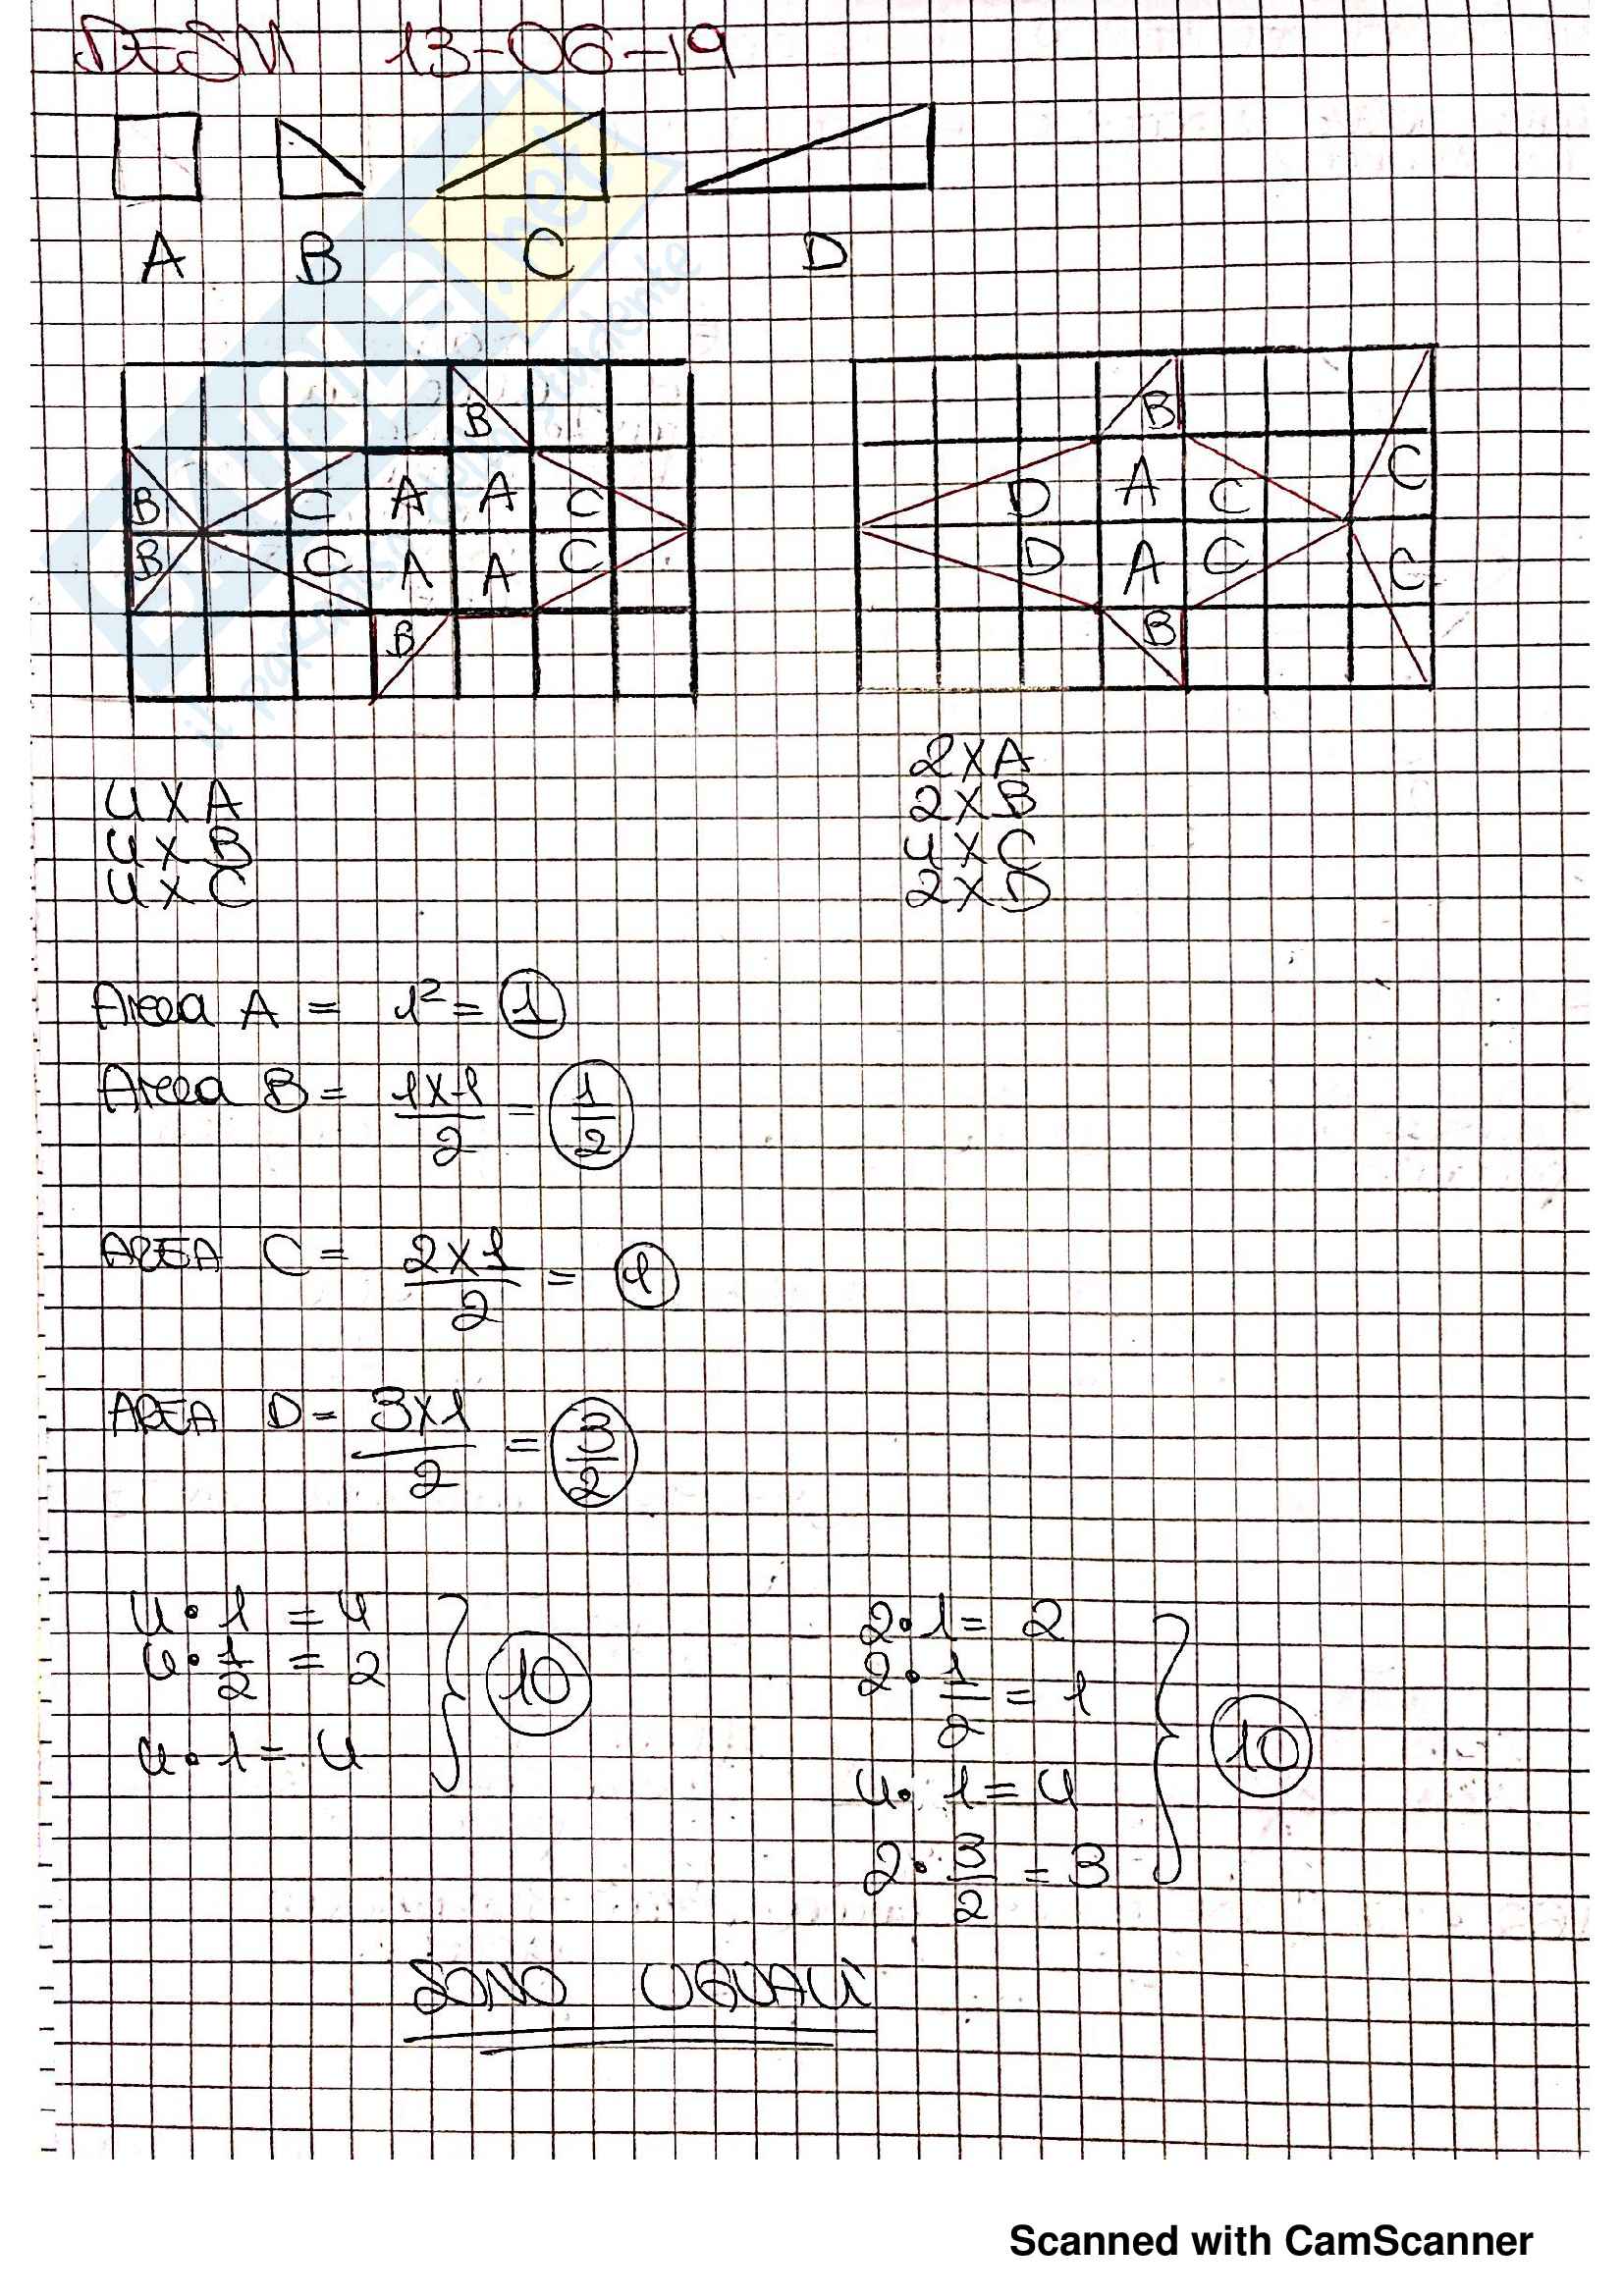 DESM 13-06-19
A B C D
B B
B C A A C D A C C
B C A A C D A C C
B B
4 X A
4 X B
4 X C
2 X A
2 X B
4 X C
2 X D
Area A = 1² = 1
Area B = 1X1/2 = 1/2
AREA C = 2X1/2 = 1
AREA D = 3X1/2 = 3/2
4 • 1 = 4
4 • 1/2 = 2
4 • 1 = 4
10
2 • 1 = 2
2 • 1/2 = 1
4 • 1 = 4
2 • 3/2 = 3
10
SONO UGUALI
Scanned with CamScanner